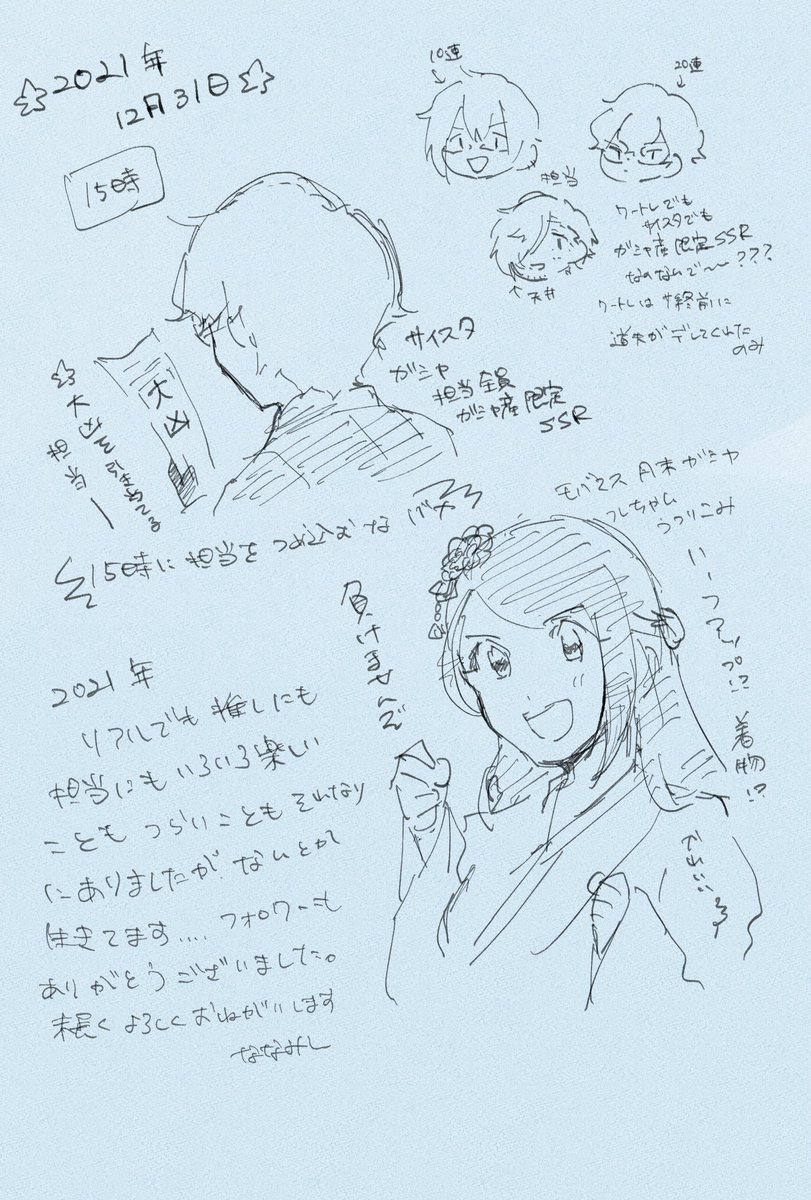 2021年
12月31日
15時
10連
20連
担当
天井
ワートレでも
サイスタでも
ガシャ産限定SSR
なのなんで〜???
ワートレはサ終前に
道夫がデレてくれた
のみ
サイスタ
ガシャ
担当全員
ガシャ産限定
SSR
大凶
☆大凶を引き当てる
担当ー
15時に担当をつめ込むな バカ
モバマス月末ガシャ
フレちゃん
うつりこみ
いーつアップ!?
着物!?
かわいい
負けませんぞ
2021年
リアルでも推しにも
担当にもいろいろ楽しい
こともつらいこともそれなり
にありましたがなんとか
生きてます.... フォロワーも
ありがとうございました。
末長くよろしくおねがいします
ななみし